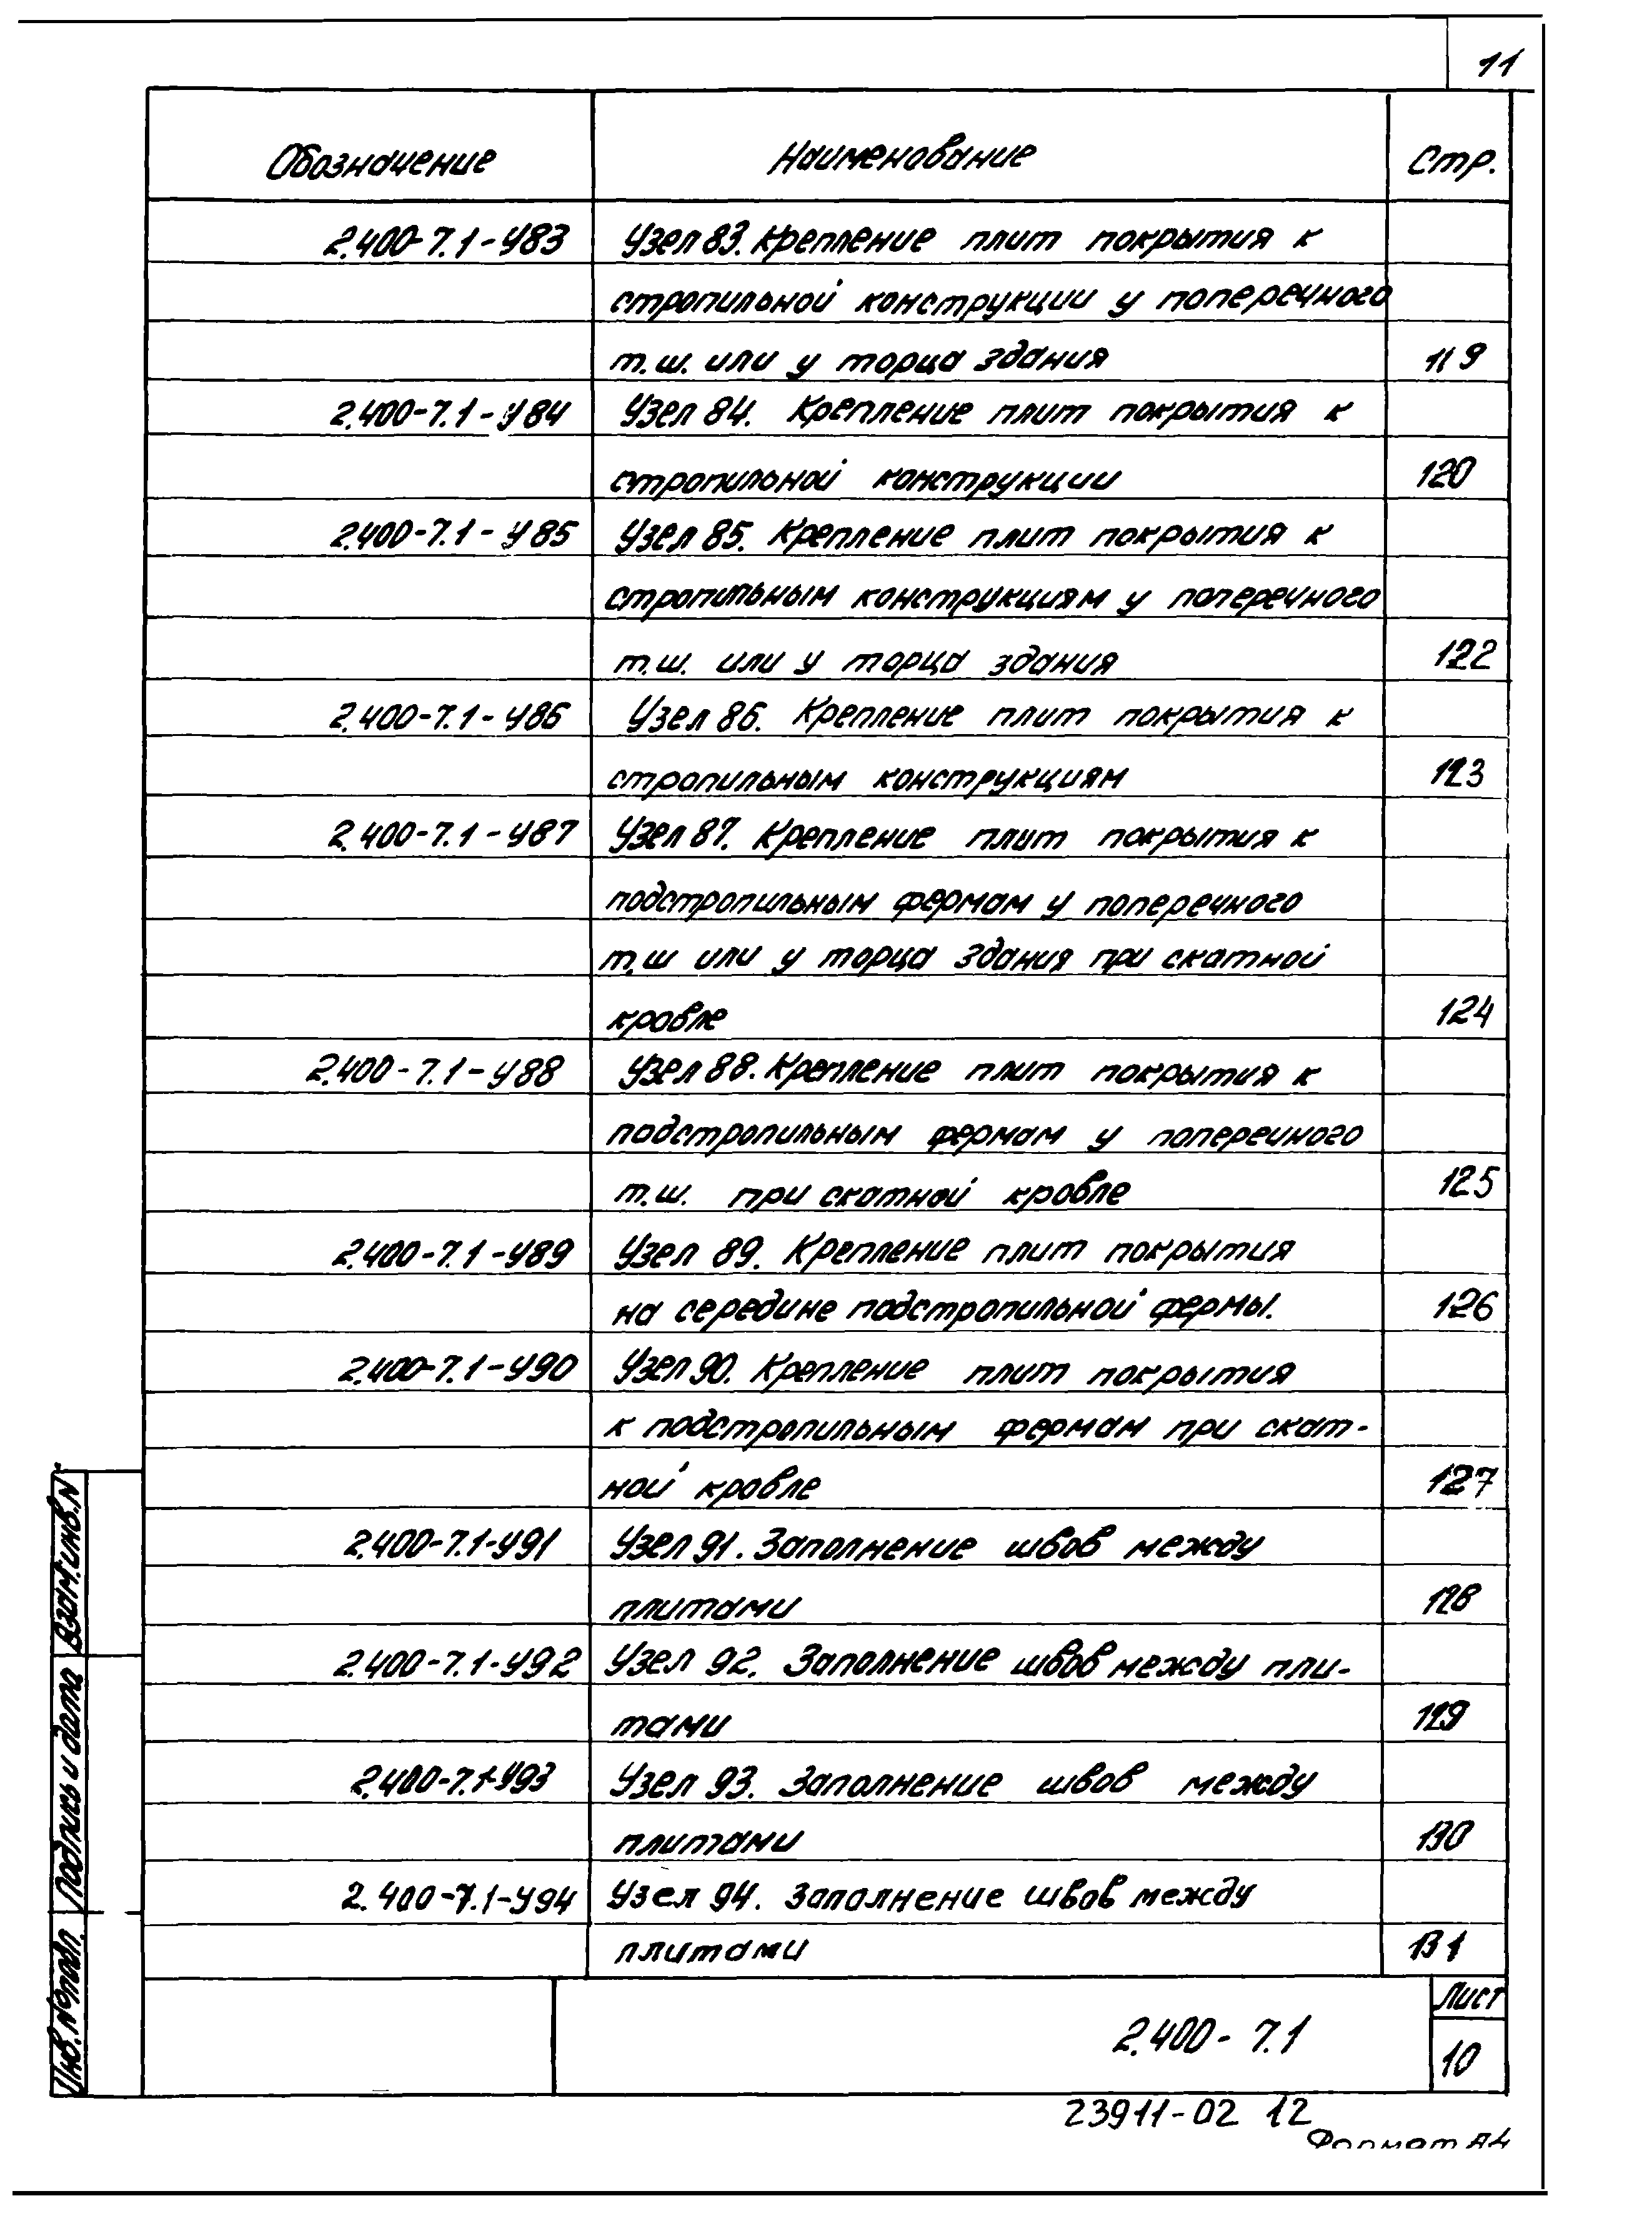 11
Обозначение Наименование Стр.
2.400-7.1-У83 Узел 83. Крепление плит покрытия к
стропильной конструкции у поперечного
т.ш. или у торца здания 119
2.400-7.1-У84 Узел 84. Крепление плит покрытия к
стропильной конструкции 120
2.400-7.1-У85 Узел 85. Крепление плит покрытия к
стропильным конструкциям у поперечного
т.ш. или у торца здания 122
2.400-7.1-У86 Узел 86. Крепление плит покрытия к
стропильным конструкциям 123
2.400-7.1-У87 Узел 87. Крепление плит покрытия к
подстропильным фермам у поперечного
т.ш или у торца здания при скатной
кровле 124
2.400-7.1-У88 Узел 88. Крепление плит покрытия к
подстропильным фермам у поперечного
т.ш. при скатной кровле 125
2.400-7.1-У89 Узел 89. Крепление плит покрытия
на середине подстропильной фермы. 126
2.400-7.1-У90 Узел 90. Крепление плит покрытия
к подстропильным фермам при скат-
ной кровле 127
2.400-7.1-У91 Узел 91. Заполнение швов между
плитами 128
2.400-7.1-У92 Узел 92. Заполнение швов между пли-
тами 129
2.400-7.1-У93 Узел 93. Заполнение швов между
плитами 130
2.400-7.1-У94 Узел 94. Заполнение швов между
плитами 131
Взам.инв.N
Подпись и дата
Инв.Nподл.
2.400-7.1
Лист
10
23911-02 12
Формат А4